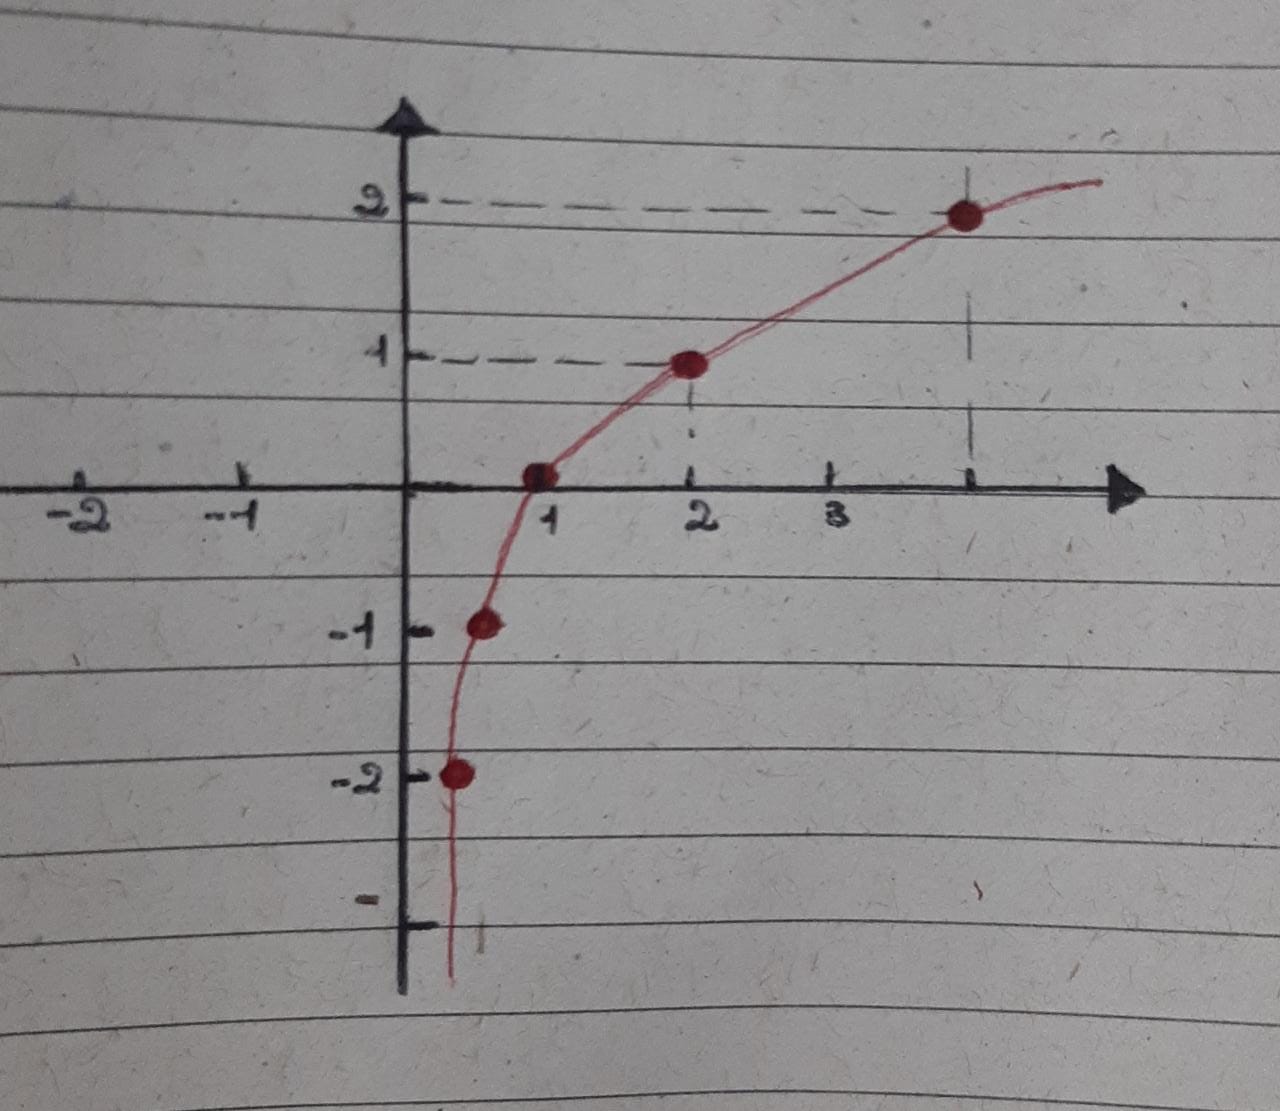 2
1
-2 -1 1 2 3
-1
-2
-